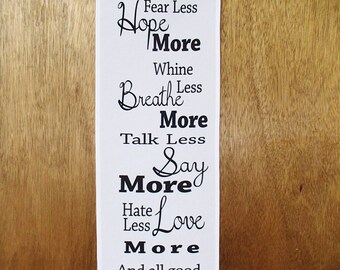 Fear Less
Hope
More
Whine
Less
Breathe
More
Talk Less
Say
More
Hate
Less
Love
More
And all good